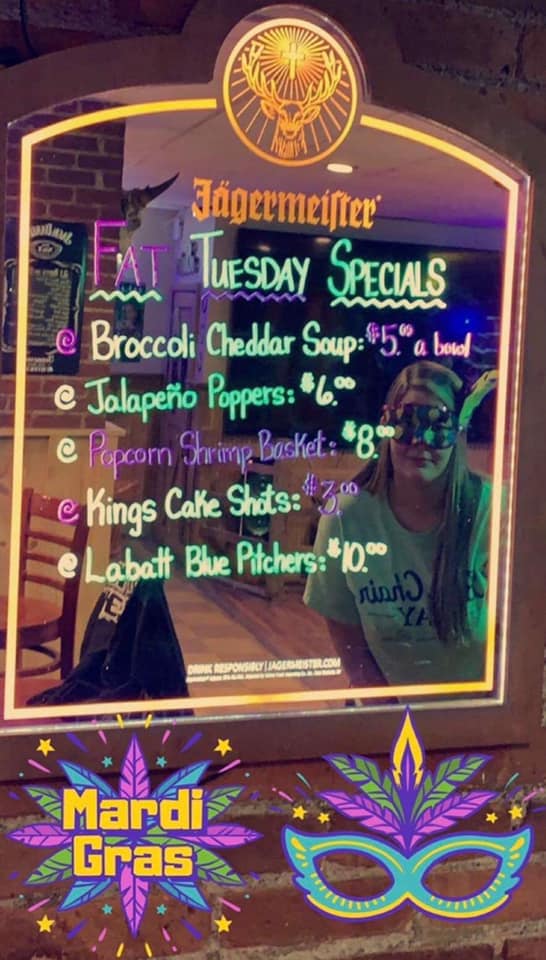 Jägermeister®
FAT TUESDAY SPECIALS
Broccoli Cheddar Soup: $5.00 a bowl
Jalapeño Poppers: $6.00
Popcorn Shrimp Basket: $8.00
Kings Cake Shots: $3.00
Labatt Blue Pitchers: $10.00
DRINK RESPONSIBLY | JAGERMEISTER.COM
Mardi
Gras